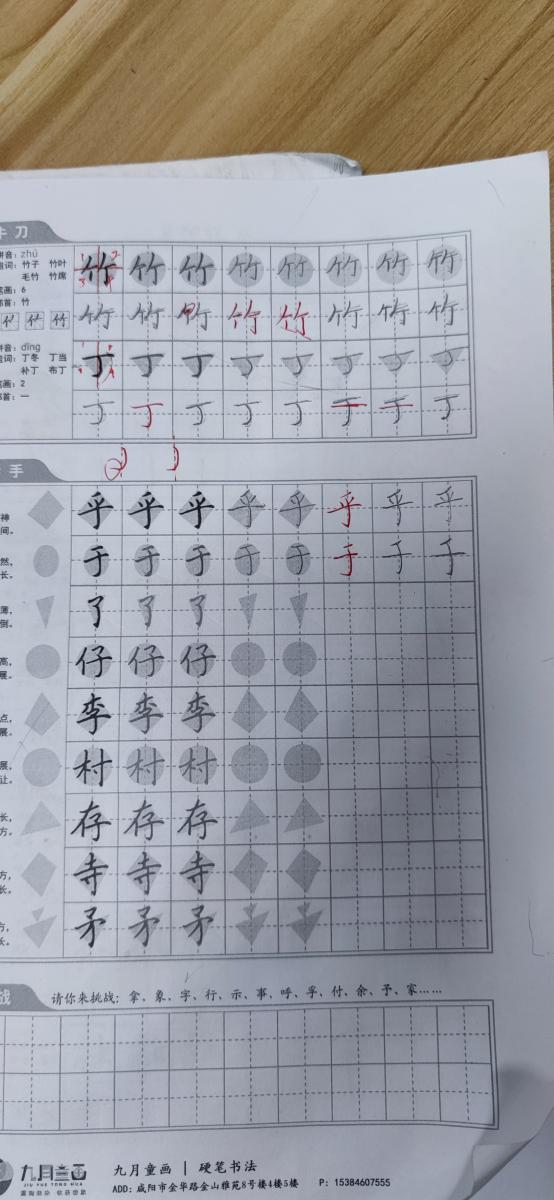 牛刀
拼音：zhú
组词：竹子 竹叶
毛竹 竹席
笔画：6
部首：竹
竹 竹 竹 竹 竹 竹 竹 竹
竹 竹 竹 竹 竹 竹 竹 竹
拼音：dīng
组词：丁冬 丁当
补丁 布丁
笔画：2
部首：一
丁 丁 丁 丁 丁 丁 丁 丁
丁 丁 丁 丁 丁 丁 丁 丁
手
神
间。
乎 乎 乎 乎 乎 乎 乎 乎
然，
长。
于 于 于 于 于 于 于 于
薄，
倒。
了 了 了
高，
展。
仔 仔 仔
点，
展。
李 李 李
展，
让。
村 村 村
长，
方。
存 存 存
方，
长。
寺 寺 寺
方，
长。
矛 矛 矛
战
请你来挑战：拿、象、字、行、示、事、呼、孚、付、余、予、家……
九月童画
JIU YUE TONG HUA
九月童画 | 硬笔书法
ADD：咸阳市金华路金山雅苑8号楼4楼5楼 P：15384607555